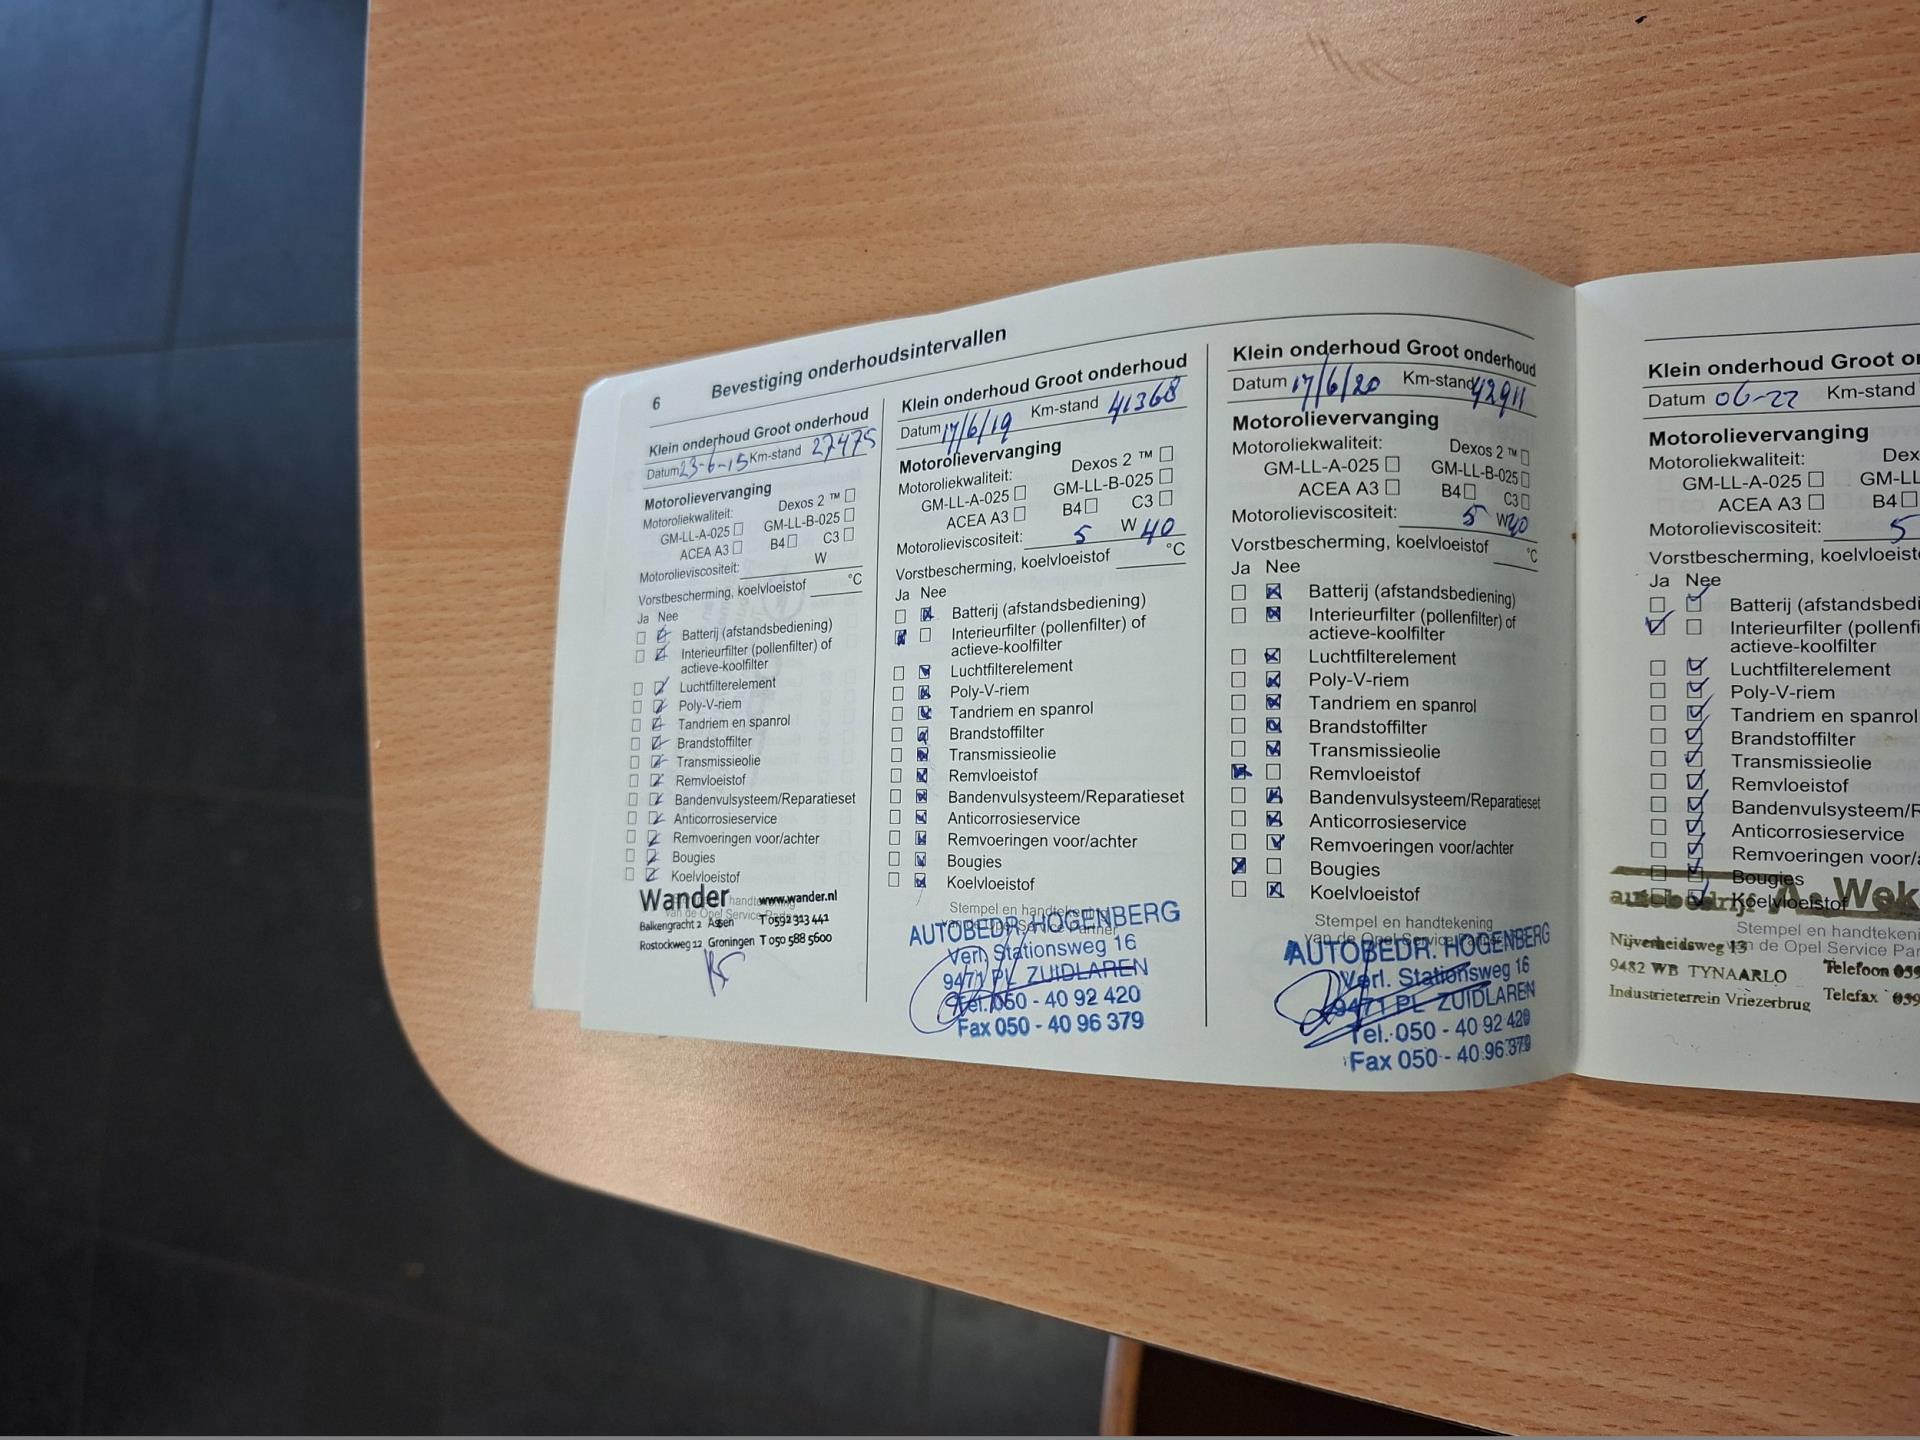 6
Bevestiging onderhoudsintervallen
Klein onderhoud Groot onderhoud
Datum 23-6-15 Km-stand 27475
Motorolievervanging
Motoroliekwaliteit: Dexos 2 ™
GM-LL-A-025 GM-LL-B-025
ACEA A3 B4 C3
Motorolieviscositeit: W
Vorstbescherming, koelvloeistof °C
Ja Nee
Batterij (afstandsbediening)
Interieurfilter (pollenfilter) of
actieve-koolfilter
Luchtfilterelement
Poly-V-riem
Tandriem en spanrol
Brandstoffilter
Transmissieolie
Remvloeistof
Bandenvulsysteem/Reparatieset
Anticorrosieservice
Remvoeringen voor/achter
Bougies
Koelvloeistof
Wander www.wander.nl
Balkengracht 2 Assen T 0592 313 441
Rostockweg 12 Groningen T 050 588 5600
Klein onderhoud Groot onderhoud
Datum 17/6/19 Km-stand 41368
Motorolievervanging
Motoroliekwaliteit: Dexos 2 ™
GM-LL-A-025 GM-LL-B-025
ACEA A3 B4 C3
Motorolieviscositeit: 5 W 40
Vorstbescherming, koelvloeistof °C
Ja Nee
Batterij (afstandsbediening)
Interieurfilter (pollenfilter) of
actieve-koolfilter
Luchtfilterelement
Poly-V-riem
Tandriem en spanrol
Brandstoffilter
Transmissieolie
Remvloeistof
Bandenvulsysteem/Reparatieset
Anticorrosieservice
Remvoeringen voor/achter
Bougies
Koelvloeistof
Stempel en handtekening
van de Opel Service Partner
AUTOBEDR. HOGENBERG
Verl. Stationsweg 16
9471 PL ZUIDLAREN
Tel. 050 - 40 92 420
Fax 050 - 40 96 379
Klein onderhoud Groot onderhoud
Datum 17/6/20 Km-stand 42911
Motorolievervanging
Motoroliekwaliteit: Dexos 2 ™
GM-LL-A-025 GM-LL-B-025
ACEA A3 B4 C3
Motorolieviscositeit: 5 W 40
Vorstbescherming, koelvloeistof °C
Ja Nee
Batterij (afstandsbediening)
Interieurfilter (pollenfilter) of
actieve-koolfilter
Luchtfilterelement
Poly-V-riem
Tandriem en spanrol
Brandstoffilter
Transmissieolie
Remvloeistof
Bandenvulsysteem/Reparatieset
Anticorrosieservice
Remvoeringen voor/achter
Bougies
Koelvloeistof
Stempel en handtekening
van de Opel Service Partner
AUTOBEDR. HOGENBERG
Verl. Stationsweg 16
9471 PL ZUIDLAREN
Tel. 050 - 40 92 420
Fax 050 - 40 96 379
Klein onderhoud Groot o
Datum 06-22 Km-stand
Motorolievervanging
Motoroliekwaliteit: Dex
GM-LL-A-025 GM-LL
ACEA A3 B4
Motorolieviscositeit: 5
Vorstbescherming, koelvloeist
Ja Nee
Batterij (afstandsbedi
Interieurfilter (pollenfi
actieve-koolfilter
Luchtfilterelement
Poly-V-riem
Tandriem en spanrol
Brandstoffilter
Transmissieolie
Remvloeistof
Bandenvulsysteem/R
Anticorrosieservice
Remvoeringen voor/a
Bougies
Koelvloeistof
Stempel en handtekeni
van de Opel Service Par
autobedrijf A. Wek
Nijverheidsweg 13
9482 WB TYNAARLO Telefoon 059
Industrieterrein Vriezerbrug Telefax 059